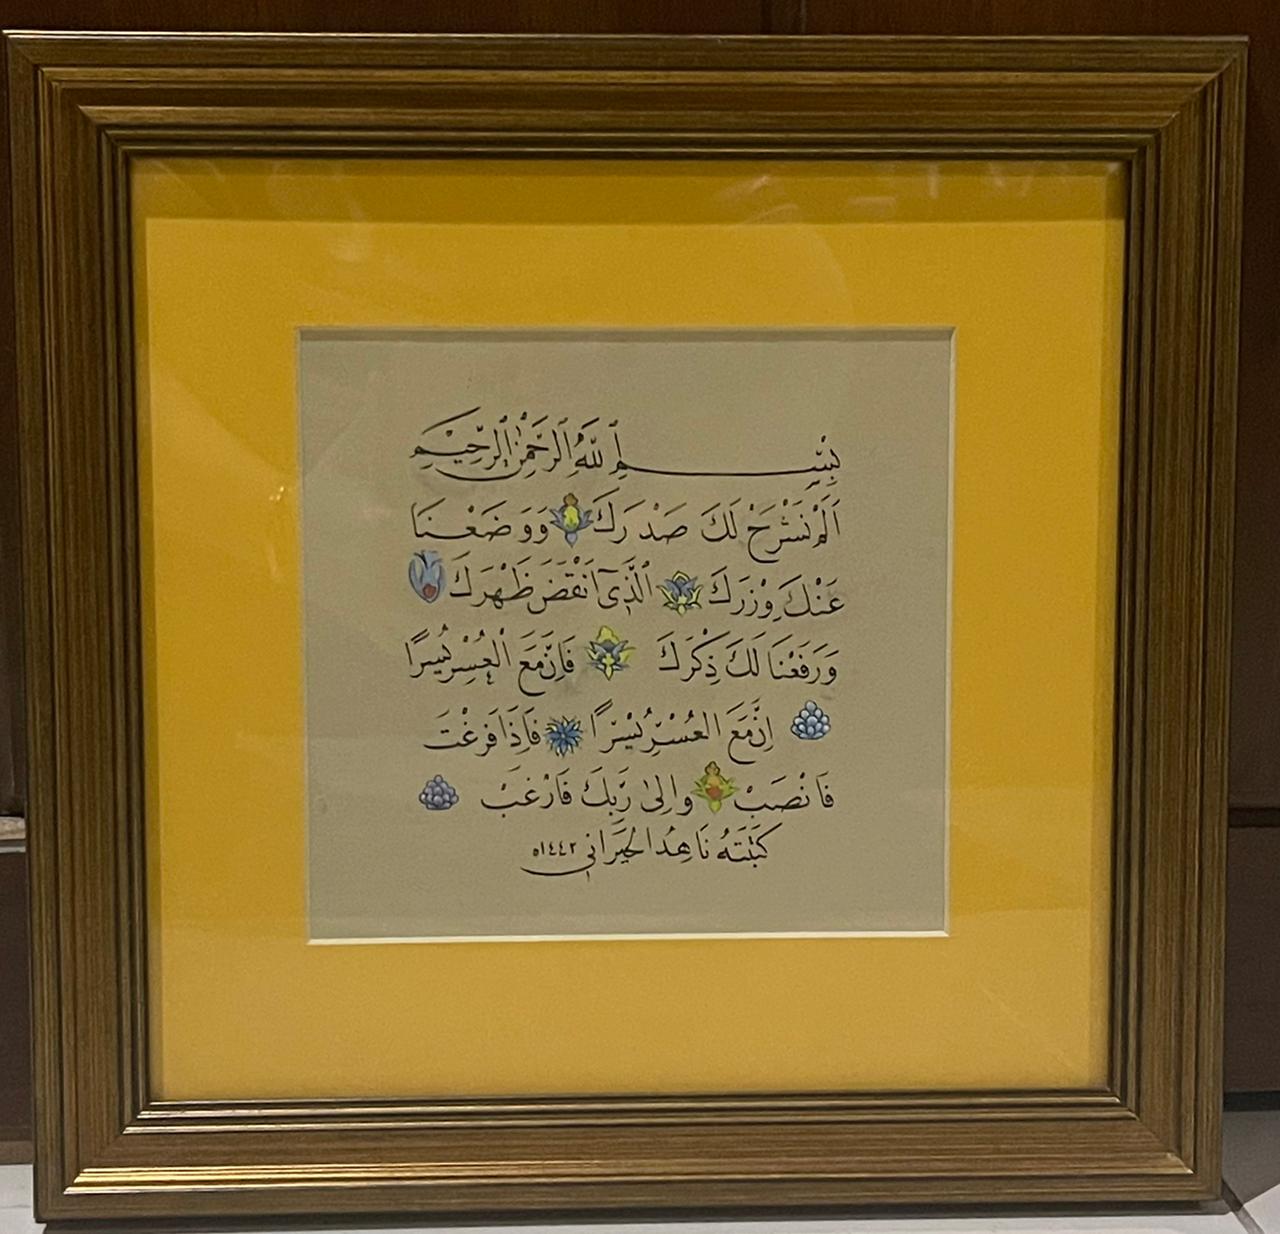 بِسْمِ ٱللَّهِ ٱلرَّحْمَٰنِ ٱلرَّحِيمِ
اَلَمْ نَشْرَحْ لَكَ صَدْرَكَ وَوَضَعْنَا
عَنْكَ وِزْرَكَ اَلَّذِىٓ اَنْقَضَ ظَهْرَكَ
وَرَفَعْنَا لَكَ ذِكْرَكَ فَاِنَّ مَعَ الْعُسْرِ يُسْرًا
اِنَّ مَعَ الْعُسْرِ يُسْرًا فَاِذَا فَرَغْتَ
فَانْصَبْ وَاِلٰى رَبِّكَ فَارْغَبْ
كَتَبَتْهُ نَاهِدُ الحَيْرَانِي ١٤٤٢ه